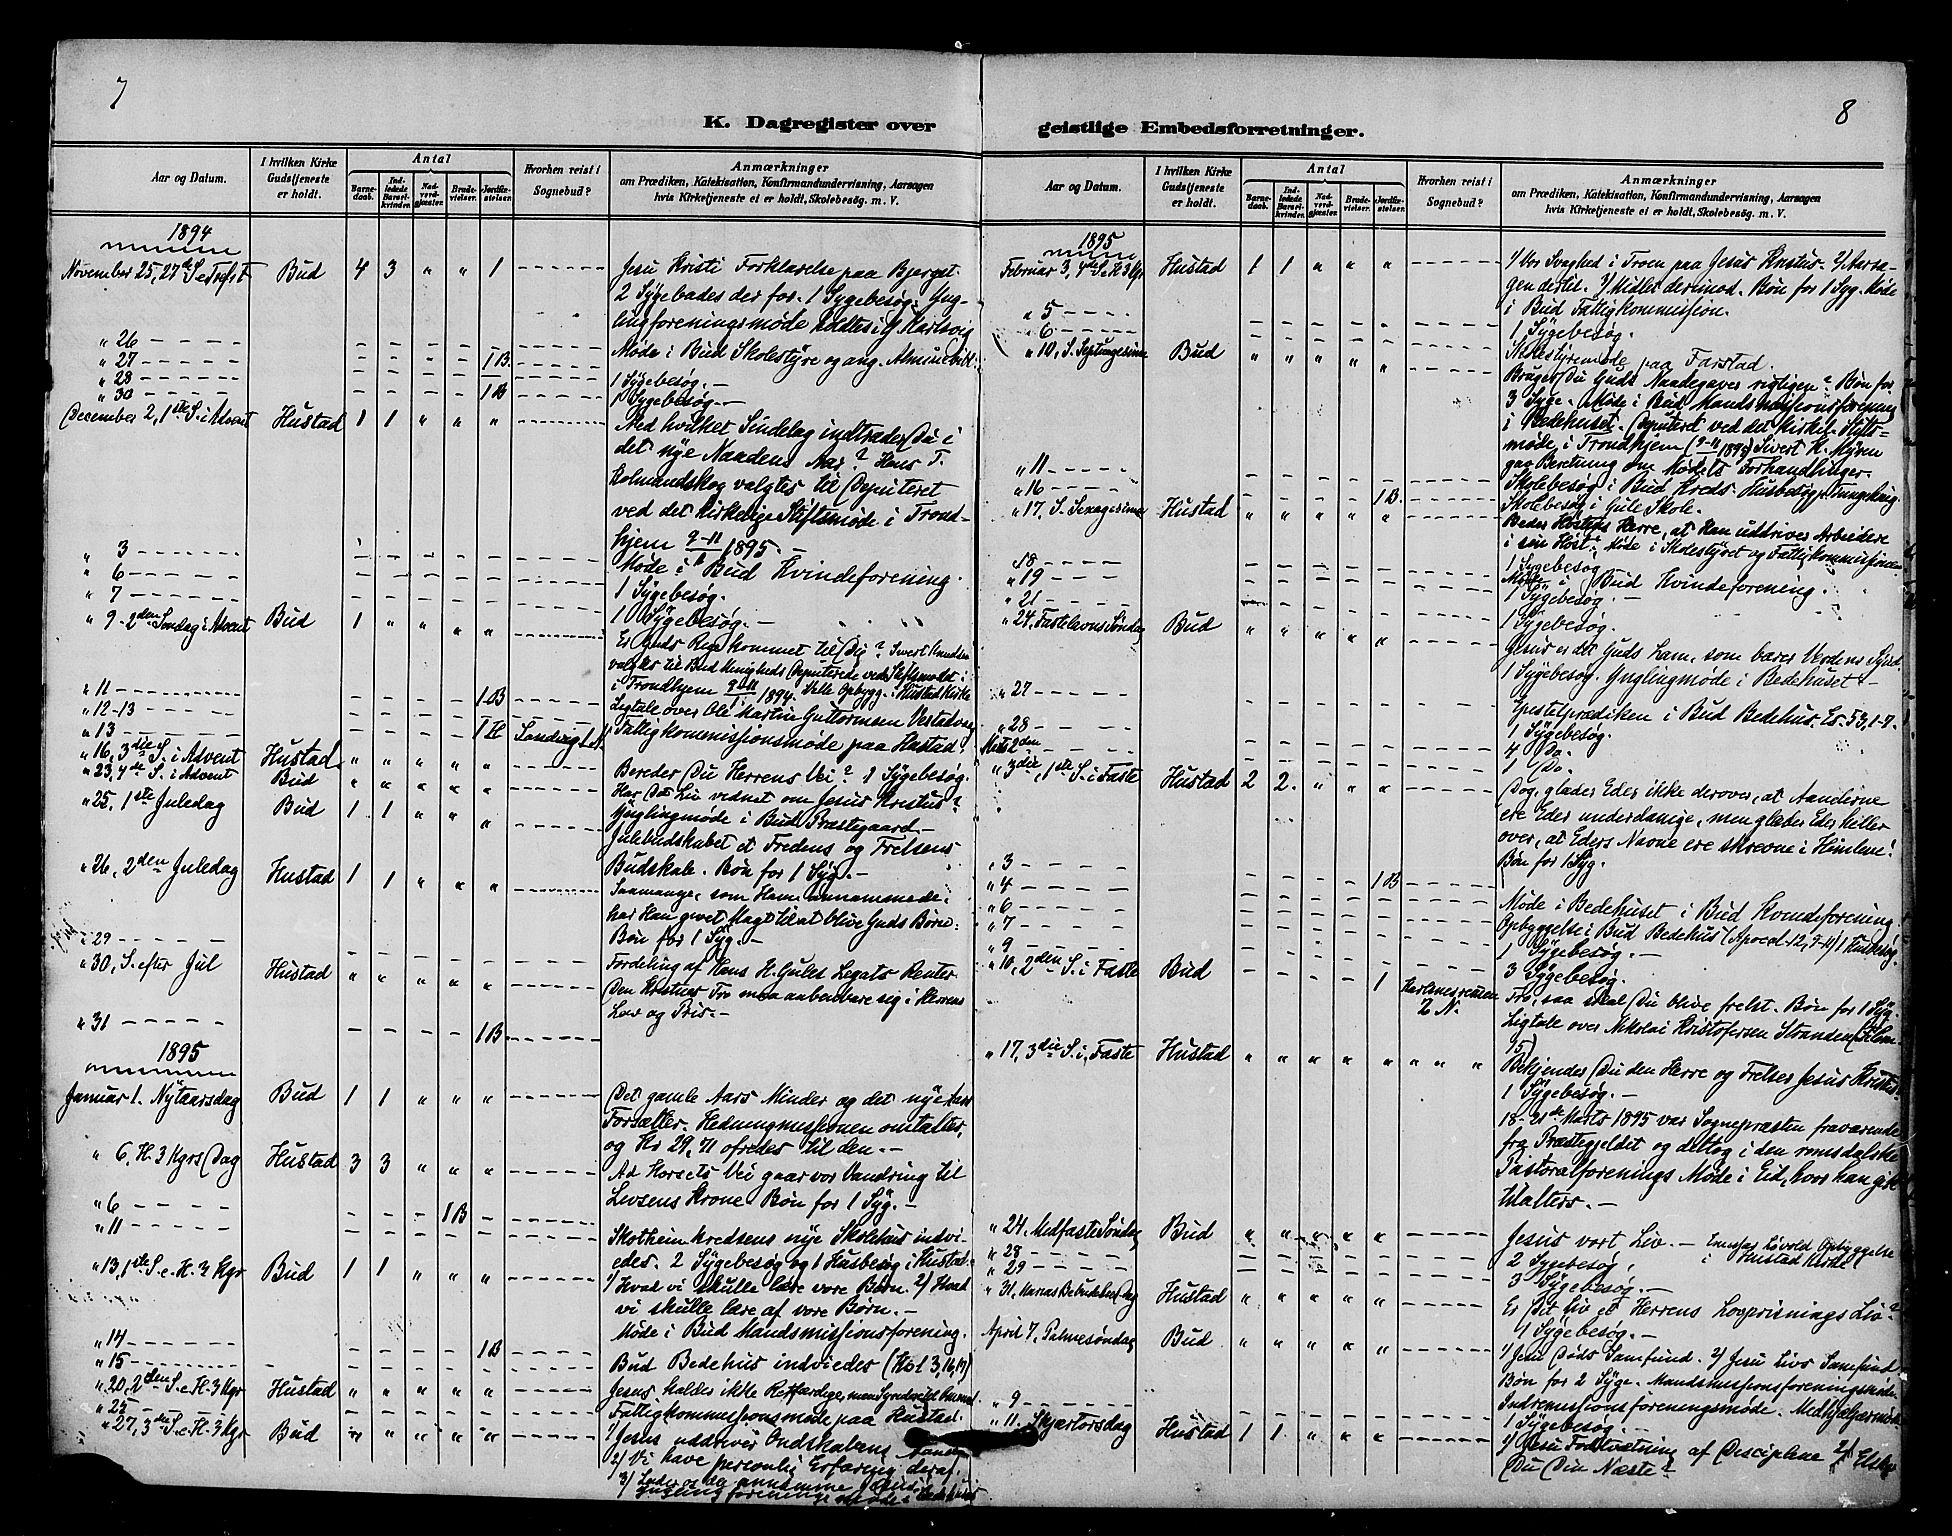 7
8
K. Dagregister over geistlige Embedsforretninger.
Aar og Datum.
I hvilken Kirke Gudstjeneste er holdt.
Antal
Barnedaab.
Indledede Barselkvinder.
Nadverdgjæster.
Brudevielser.
Jordfæstelser.
Hvorhen reist i Sognebud?
Anmærkninger
om Prædiken, Katekisation, Konfirmandundervisning, Aarsagen
hvis Kirketjeneste ei er holdt, Skolebesøg. m. V.
1894
November 25, 27de S. e Trefst Bud 4 3 " " 1 Jesu Kristi Forklarelse paa Bjerget.
2 Sygebades der for. 1 Sygebesøg. Yng-
lingforeningsmøde holdtes i
" 26 Møde i Bud Skolestyre og ang. Almuebibl.
" 27 1 B.
" 28 1 Sygebesøg.
" 30 1 B 1 Sygebesøg.
December 2, 1ste S. i Advent Hustad 1 1 " " " Med hvilket Sindelag indtræder Du i
det nye Naadens Aar? Hans T.
Kolmandskog valgtes til Deputeret
ved det kirkelige Stiftsmøde i Trond-
hjem 9-11 1895.
" 3 Møde i Bud Kvindeforening.
" 6 1 Sygebesøg.
" 7 1 Sygebesøg.
" 9. 2den Søndag i Advent Bud 1 " " " " Er Guds Rige kommet til Dig? Sivert Knudsen
valgtes til Bud Menigheds Deputerede ved Stiftsmødet
i Trondhjem 9-11 1894. Opbygg. i Hustad Kirke
" 11 1 B Ligtale over Ole Martin Guttormsen Vestad
" 12-13
" 13 1 H Fattigkommissionsmøde paa Hustad.
" 16, 3die S. i Advent Hustad " " " " " Bereder Du Herrens Vei? 1 Sygebesøg.
" 23, 4de S. i Advent Bud " " " " " Har Du Liv vednet om Jesus Kristus?
Ynglingmøde i Bud Præstegaard.
" 25, 1ste Juledag Bud 1 1 " " " Julebudskabet et Fredens og Frelsens
Budskab. Bøn for 1 Syg.
" 26, 2den Juledag Hustad 1 1 " " " Saamange, som Ham annammede,
har Han givet Magt til at blive Guds Børn.
Bøn for 1 Syg.
" 29 Fordeling af Hans H. Gules Legats Renter
" 30, S. efter Jul Hustad " " " " " Den Kristnes Tro maa aabenbare sig i Herrens
Lov og Pris.
" 31 1 B
1895
Januar 1. Nytaarsdag Bud 1 1 " " " Det gamle Aars Minder og det nye Aars
Forsætter. Hedningmissionen omtaltes,
og Kr 29, 71 ofredes til den.
" 6, H. 3 Kgrs Dag Hustad 3 3 " " " Ad Korsets Vei gaar vor Vandring til
Livsens Krone Bøn for 1 Syg.
" 6 1 B
" 11 Skotheim kredsens nye Skolehus indvi-
edes. 2 Sygebesøg og 1 Husbesøg i Hustad.
" 13, 1ste S. e. H. 3 Kgr Bud 1 1 " " " 1) Hvad vi skulle lære vore Børn. 2) Hvad
vi skulle lære af vore Børn.
" 14 1 B Møde i Bud Mandsmissionsforening.
" 15 Bud Bedehus indviedes (Kol 3, 16, 17)
" 20, 2den S. e. H. 3 Kgr Hustad " " " " " Jesus kalder ikke Retfærdige, men Syndere
" 25 Fattigkommissionsmøde paa Hustad.
" 27, 3die S. e. H. 3 Kgr Bud " " " " " 1) Jesus uddriver Ondskabens
2) Vi have personlig Erfaring deraf.
Ynglingforenings møde i Bedehuset
1895
Februar 3, 4de S. e. H. 3 Kgr Hustad 1 1 " " " 1) Vor Svaghed i Troen paa Jesus Kristus. 2) Aarsa-
gen dertil. 3) Midlet derimod. Bøn for 1 Syg. Møde
i Bud Fattigkommission.
" 5 1 Sygebesøg.
" 6 Skolestyremøde paa Farstad.
" 10, S. Septuagesima Bud " " " " " Bruger Du Guds Naadegaver rigtigen? Bøn for
3 Syge. Møde i Bud Mandsmissionsforening
i Bedehuset. Deputeret ved det kirkel. Stifts-
møde i Trondhjem (9-11 1895) Sivert K. Myren
gav Beretning om Mødets Forhandlinger.
" 11 Skolebesøg i Bud Kreds.
" 16 1 B. Skolebesøg i Gule Skole.
" 17, S. Sexagesima Hustad " " " " " Beder Høstens Herre, at Han uddriver Arbeidere
i sin Høst. Møde i Skolestyret og Fattigkommissionen
" 18 1 Sygebesøg
" 19 Møde i Bud Kvindeforening.
" 21 1 Sygebesøg.
1 Sygebesøg.
" 24, Fastelavns Søndag Bud " " " " " Jesus er det Guds Lam, som bærer Verdens Synd
1 Sygebesøg. Ynglingmøde i Bedehuset
" 27 Epistelprædiken i Bud Bedehus. Es. 53, 1-7.
" 28 1 Sygebesøg.
Marts 2den 4 Do.
1 Do.
" 3die, 1ste S. i Faste Hustad 2 2. " " " Dog, glæder Eder ikke derover, at Aanderne
ere Eder underdanige, men glæder Eder heller
over, at Eders Navne ere skrevne i Himlene!
Bøn for 1 Syg.
" 3
" 4 1 B
" 6 Møde i Bedehuset i Bud Kvindeforening
" 7 Opbyggelse i Bud Bedehus (Apocal. 12, 7-11) 1 Husbesøg.
" 9 1 Sygebesøg.
3 Sygebesøg.
" 10, 2den S. i Faste Bud 1 2 N. Tro, saa skal Du blive frelst. Bøn for 1 Syg.
Ligtale over Nikolai Kristofersen Stranden
15)
" 17, 3die S. i Faste Hustad " " " " " " " " Bekjender Du den Herre og Frelser Jesus Kristus?
1 Sygebesøg.
18-21de Marts 1895 var Sognepræsten fraværende
fra Præstegjeldet og deltog i den romsdalske
Pastoralforenings Møde i Eid, hvor han gik
til alters.
" 24. Midfaste Søndag Bud " " " " " Jesus vort Liv. Opbyggelse
i Hustad Kirke
" 28 2 Sygebesøg.
" 29 3 Sygebesøg.
" 31, Marias Bebudelses Dag Hustad " " " " " Er Dit Liv et Herrens Lovprisnings Liv?
4 Sygebesøg.
April 7, Palmesøndag Bud " " " " " 1) Jesu Døds Samfund. 2) Jesu Livs Samfund
Bøn for 2 Syge. Mandsmissionsforeningsmøde.
Indremissionsforeningsmøde.
" 9 1 Sygebesøg.
" 11. Skjærtorsdag Hustad 1 1 " " " 1) Jesu Fodtvætning af Disciplene 2) Elsker
Du Din Næste?